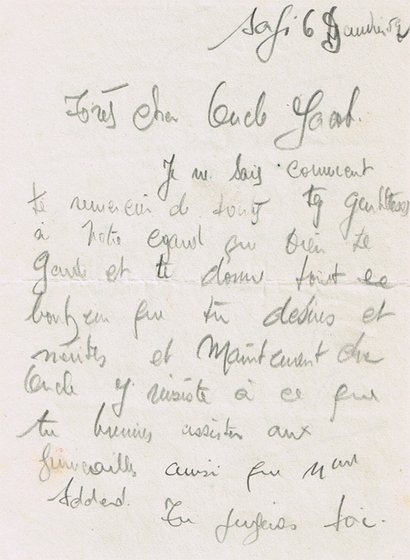 Safi 6 Janvier 59
Très cher Oncle
Je ne sais comment
te remercier de toute ta gentillesse
à notre egard que Dieu te
garde et te donne tout le
bonheur que tu desires et
mérites et Maintenant cher
Oncle J'insiste à ce que
tu viennes assister aux
funerailles ainsi que
Tu